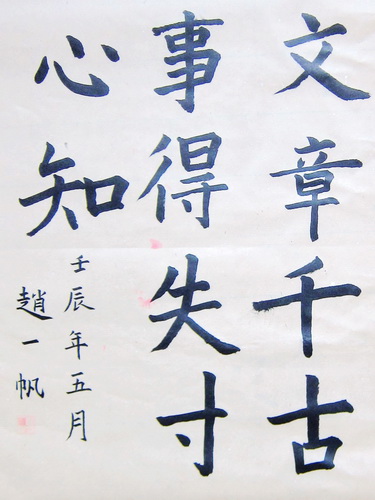 文章千古
事得失寸
心知
壬辰年五月
趙一帆